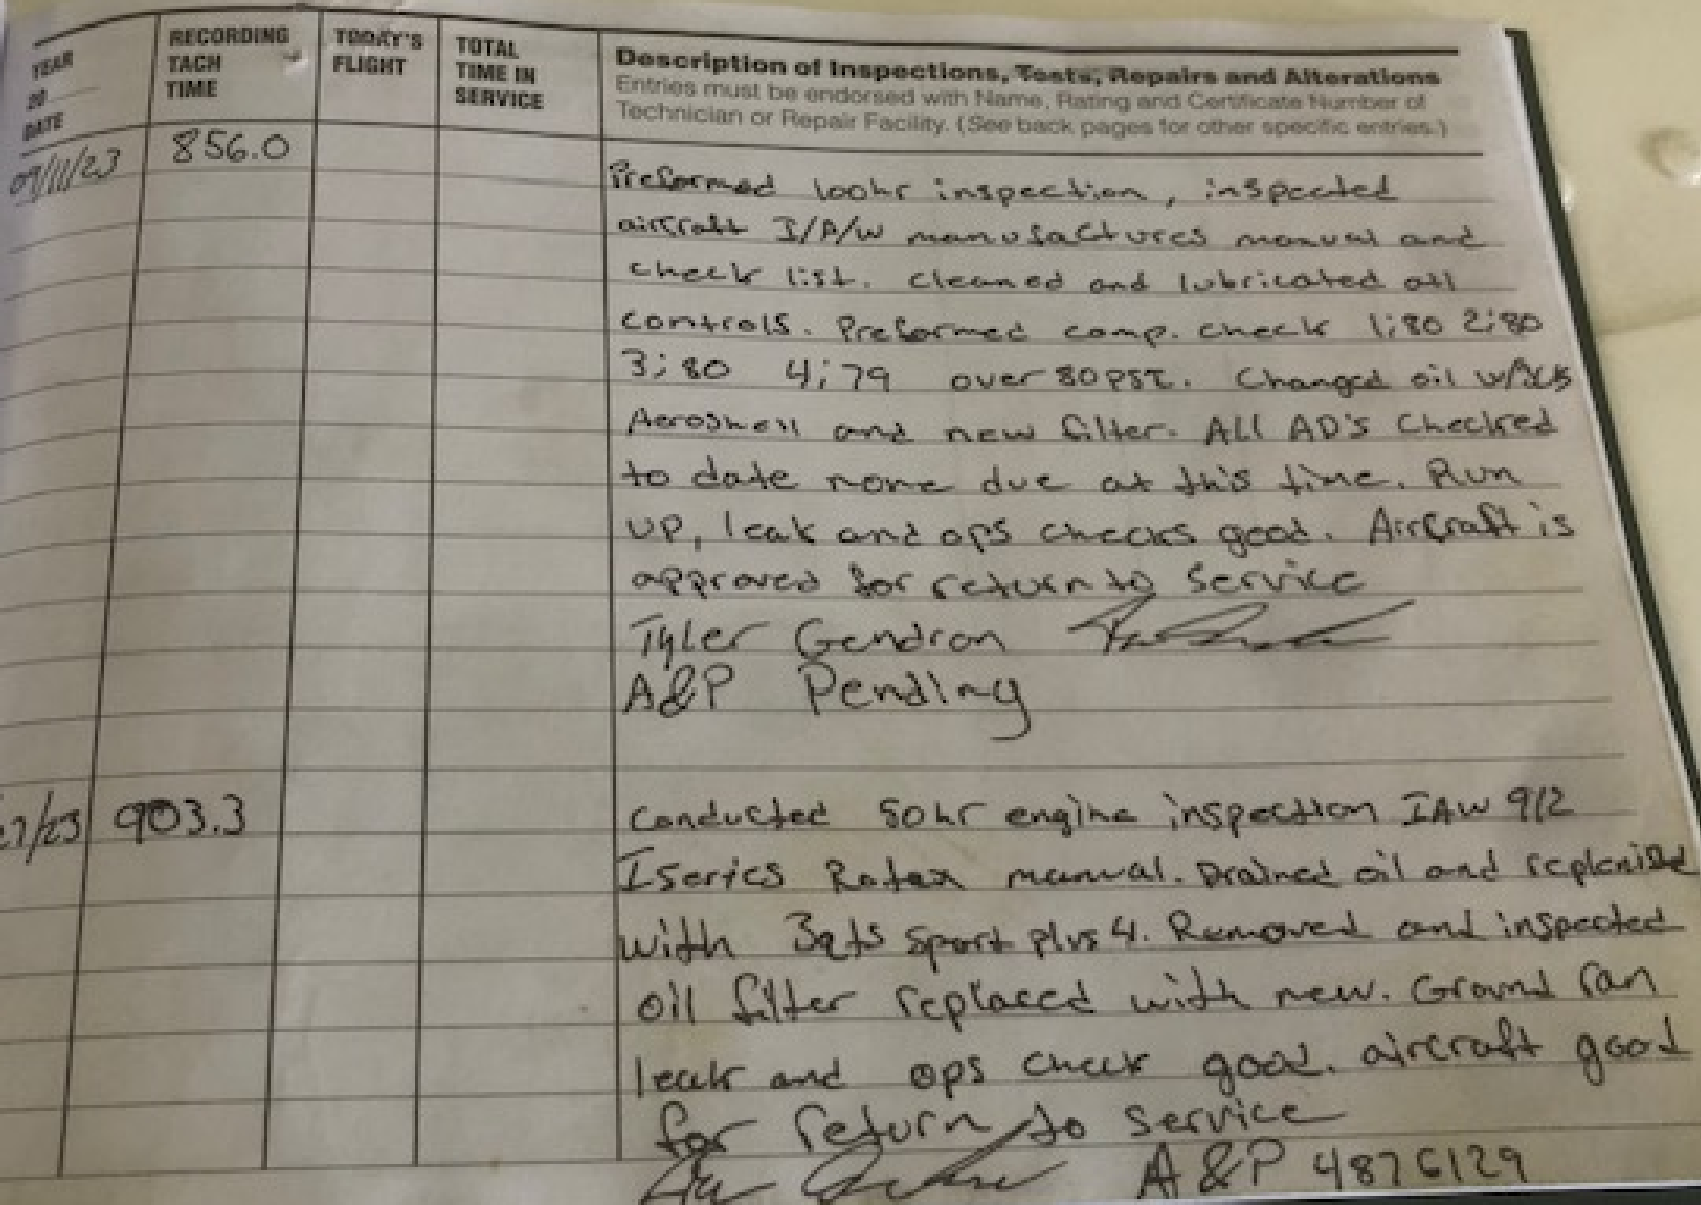 YEAR
20
DATE
RECORDING
TACH
TIME
TODAY'S
FLIGHT
TOTAL
TIME IN
SERVICE
Description of Inspections, Tests, Repairs and Alterations
Entries must be endorsed with Name, Rating and Certificate Number of
Technician or Repair Facility. (See back pages for other specific entries.)
09/11/23 856.0
Preformed 100hr inspection, inspected
aircraft I/A/W manufactures manual and
check list. cleaned and lubricated all
controls. Preformed comp. check 1;80 2;80
3;80 4;79 over 80PSI. Changed oil
Aeroshell and new filter. All AD's Checked
to date none due at this time. Run
up, leak and ops checks good. Aircraft is
approved for return to service
Tyler Gendron
A&P Pending
27/23 903.3
Conducted 50hr engine inspection IAW 912
Iseries Rotax manual. Drained oil and
with 3qts sport plus 4. Removed and inspected
oil filter replaced with new. Ground ran
leak and ops check good. aircraft good
for return to service
A&P 4876129